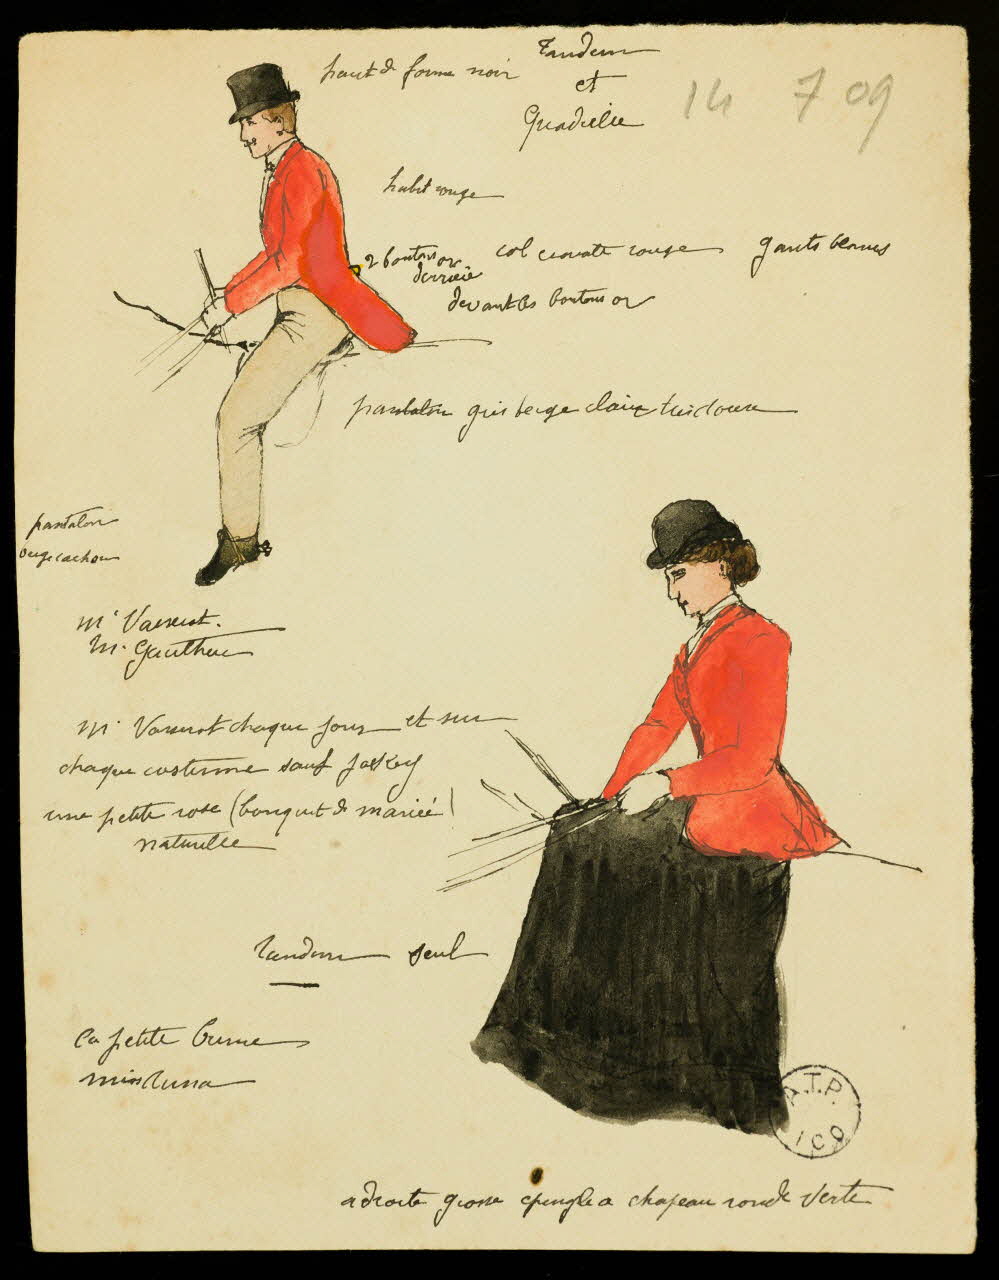 haut de forme noir
Tandem
et
Quadrille
14 7 09
habit rouge
2 boutons or
derrière
col cravate rouge
gants blancs
devant les boutons or
pantalon gris beige claire
pantalon
beige cachou
Mr Vasserot.
M. Gauthier
Mr Vasserot chaque jour et sur
chaque costume sauf Jockey
une petite rose (bouquet de mariée)
naturelle
Tandem seul
La petite brune
miss
A.T.P.
ICO
a droite grosse epingle a chapeau ronde verte